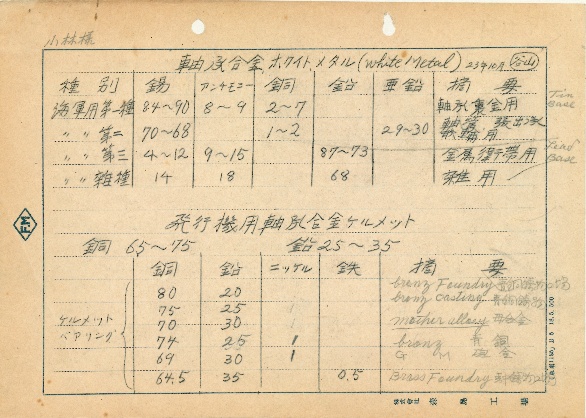 小林様
軸承合金ホワイトメタル(White Metal) 23年10月
種別 錫 アンチモニー 銅 鉛 亜鉛 摘要
海軍用第一種 84~90 8~9 2~7 軸承裏金用 Tin Base
〃 〃 第二 70~68 1~2 29~30
〃 〃 第三 4~12 9~15 87~73 金属 帯用 Lead Base
〃 〃 雑種 14 18 68 雑用
飛行機用軸承合金ケルメット
銅 65~75 鉛 25~35
銅 鉛 ニッケル 鉄 摘要
80 20 bronz Foundry
75 25 bronz casting
ケルメットベアリング 70 30 mother allory 母合金
74 25 1 bronz 青銅
69 30 1 G M 砲金
64.5 35 0.5 Brass Foundry
FM
株式会社 工場